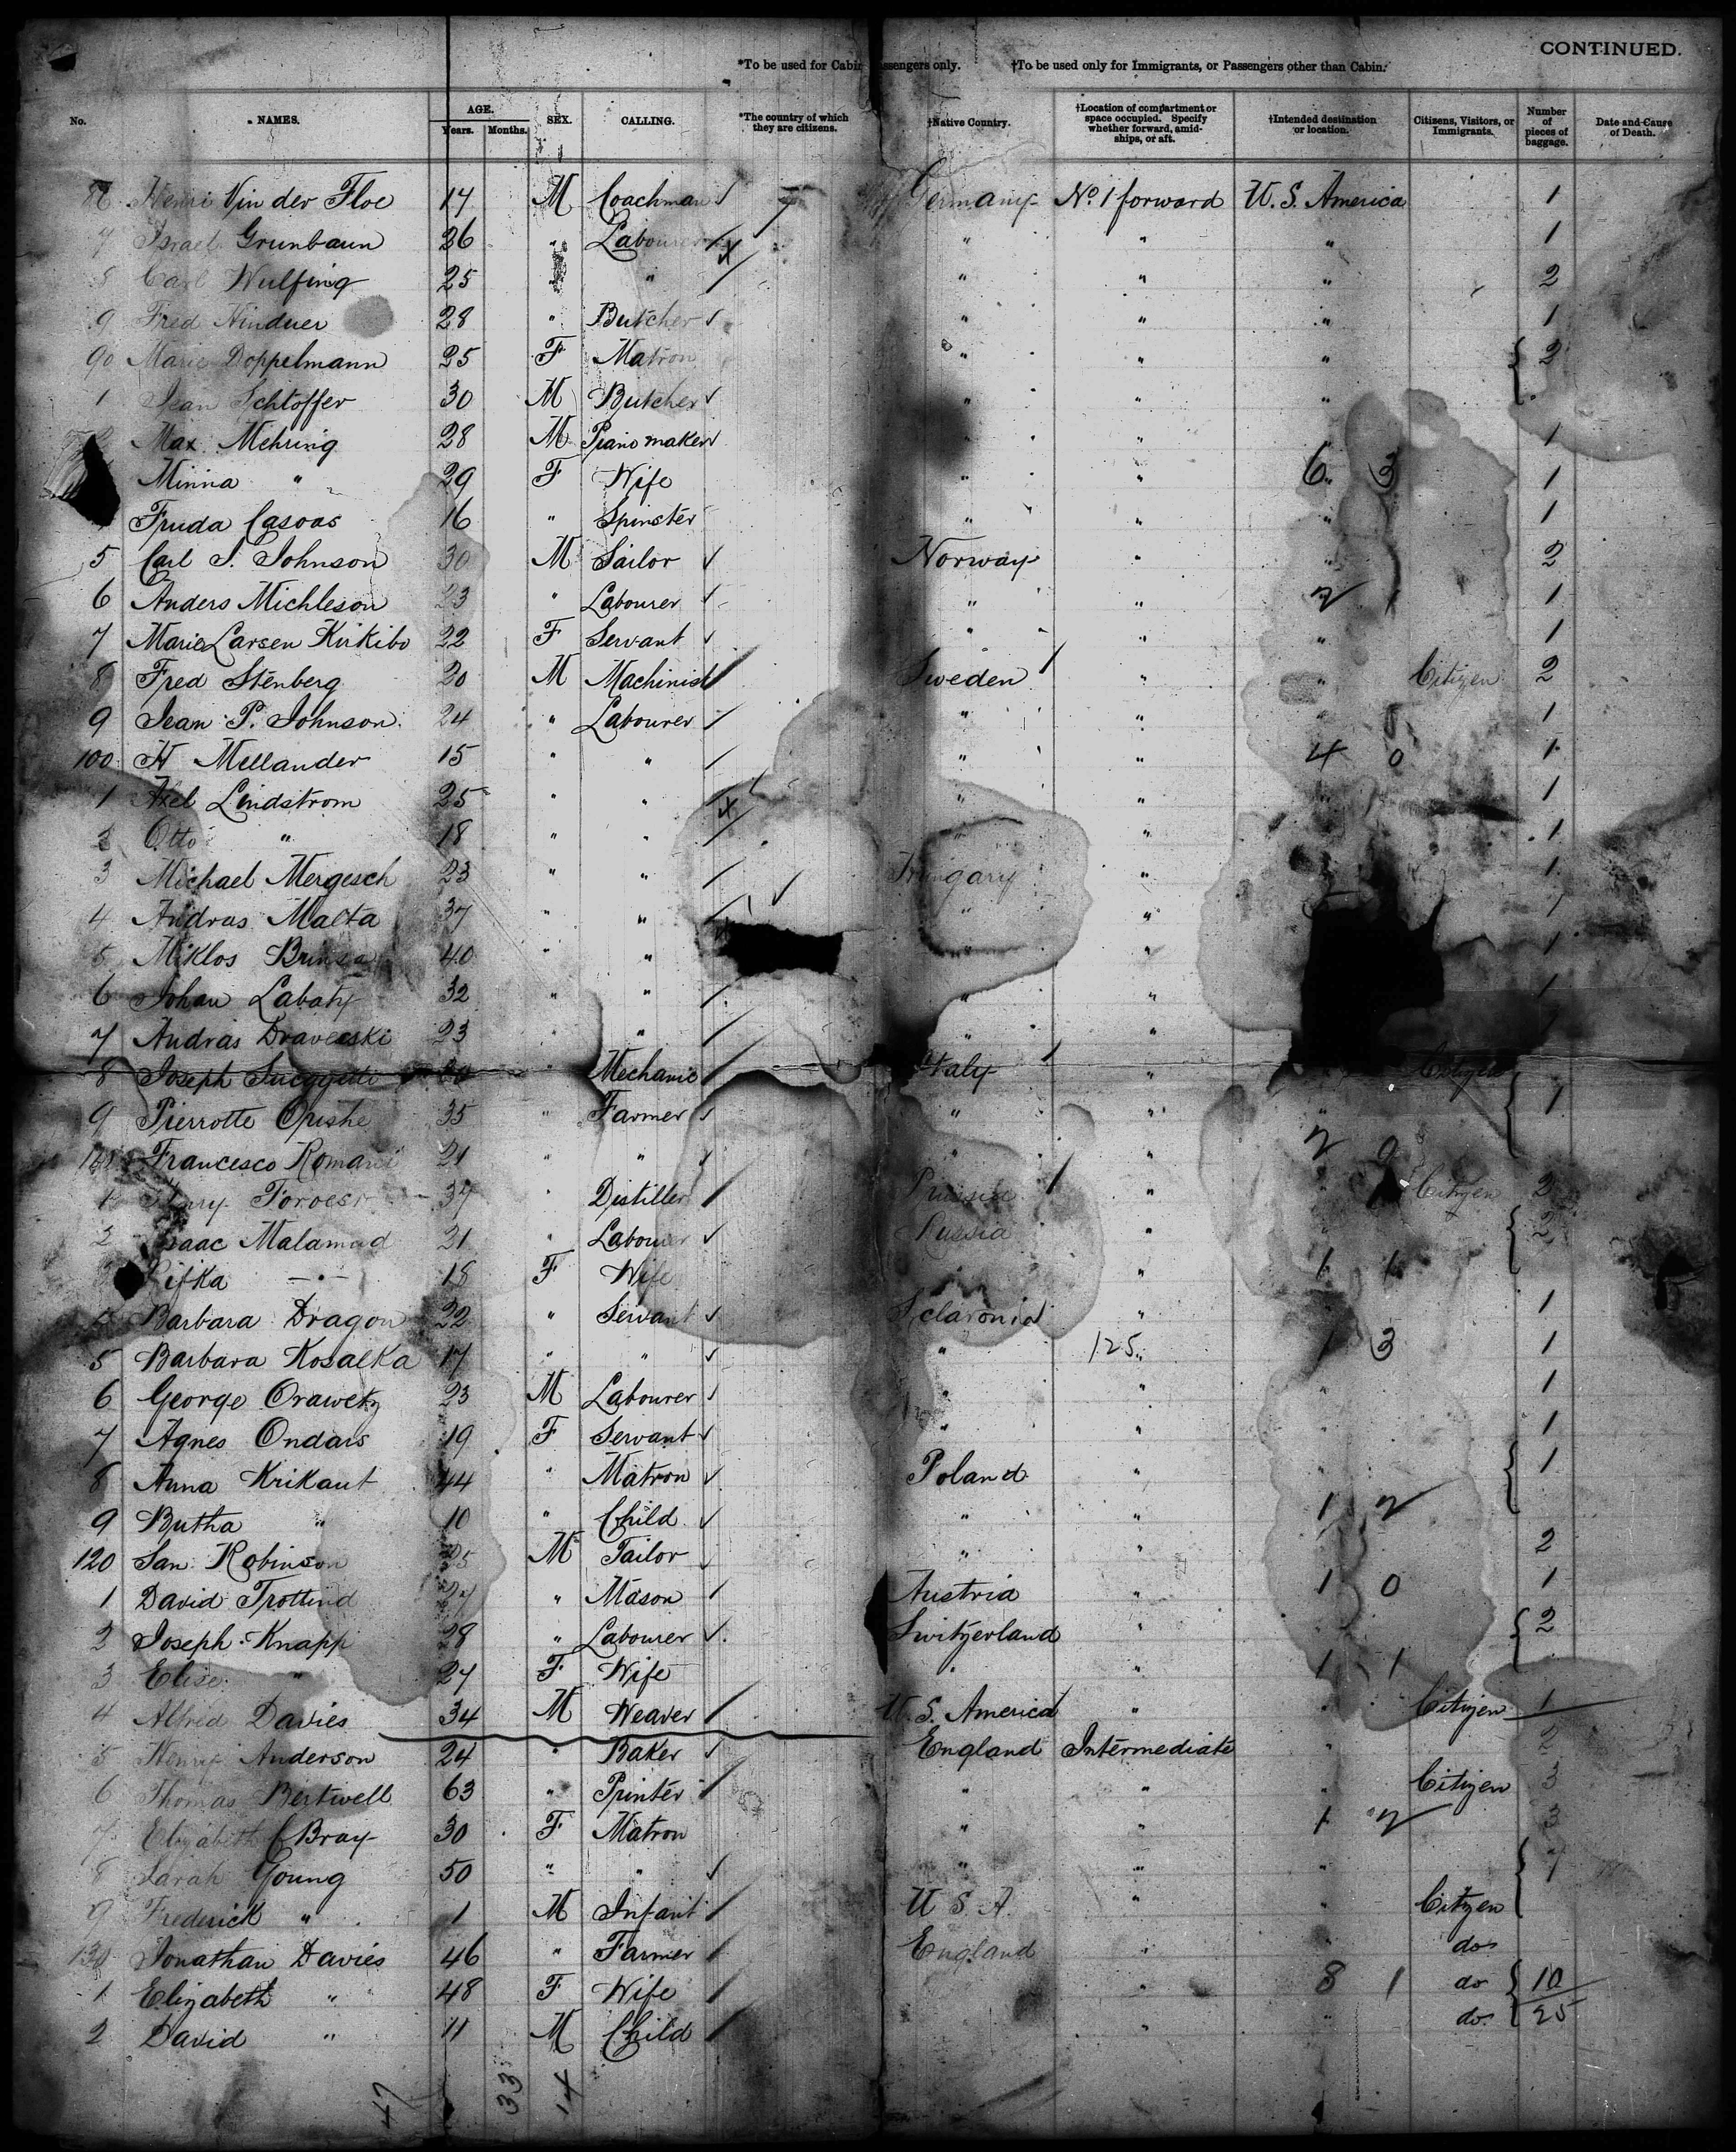 CONTINUED.
*To be used for Cabin Passengers only. †To be used only for Immigrants, or Passengers other than Cabin.
No. NAMES. AGE. Years. Months. SEX. CALLING. *The country of which they are citizens. †Native Country. †Location of compartment or space occupied. Specify whether forward, amidships, or aft. †Intended destination or location. Citizens, Visitors, or Immigrants. Number of pieces of baggage. Date and Cause of Death.
Henri Vin der Floe 14 M Coachman Germany No 1 forward U. S. America 1
7 Israel Grunbaun 26 " Labourer " " " 1
8 Carl Wulfing 25 " " " " " 2
9 Fred Hinduer 28 " Butcher " " " 1
90 Marie Doppelmann 25 F Matron " " " 2
1 Jean Schtoffer 30 M Butcher " " "
Max Mehring 28 M Piano maker " " " 1
Minna " 29 F Wife " " 6 3 1
Fruda Casoas 16 " Spinster " " " 1
5 Carl S. Johnson 30 M Sailor Norway " " 2
6 Anders Michleson 23 " Labourer " " 2 1 1
7 Marie Larsen Kirkibo 22 F Servant " " " 1
8 Fred Stenberg 20 M Machinist Sweden " " Citizen 2
9 Jean P. Johnson 24 " Labourer " " " 1
100 H Mellander 15 " " " " 4 0 1
1 Axel Lindstrom 25 " " " " " 1
2 Otto " 18 " " " " 1
3 Michael Mergesch 23 " " Hungary " 1
4 Andras Malta 37 " " " " 1
5 Miklos 40 " " " " 1
6 Johan Labaty 32 " " " " 1
7 Andras Draveeski 23 " " " "
8 Joseph " Mechanic Italy " Citizen
9 Pierrotte Opishe 35 " Farmer " " " 1
Francesco Romani 21 " " " " 2 9
1 37 " Distiller " Citizen 2
2 Isaac Malamud 21 " Labourer Russia " 2
Rifka " 18 F Wife " " 1 1
Barbara Dragon 22 " Servant Sclavonia " 1
5 Barbara Kosalka 17 " " " 125 " 1 3 1
6 George Orawetz 23 M Labourer " " " 1
7 Agnes Ondais 19 F Servant " " " 1
8 Anna Krikaut 44 " Matron Poland " " 1
9 Butha " 10 " Child " " 1 2
120 San Robinson 25 M Tailor " " 2
1 David Trottind 27 " Mason Austria " 1 0 1
2 Joseph Knapp 28 " Labourer Switzerland " " 2
3 Elise " 27 F Wife " " 1 1
4 Alfred Davies 34 M Weaver U. S. America " " Citizen 1
5 Henry Anderson 24 " Baker England Intermediate " 2
6 Thomas Bertwell 63 " Printer " " " Citizen 3
7 Elizabeth Bray 30 F Matron " " 1 2 3
8 Sarah Young 50 " " " " " 7
9 Frederick " 1 M Infant U S A. " " Citizen
130 Jonathan Davies 46 " Farmer England " " do
1 Elizabeth " 48 F Wife " 8 1 do 10
2 David " 11 M Child " " do 25
47 33 14